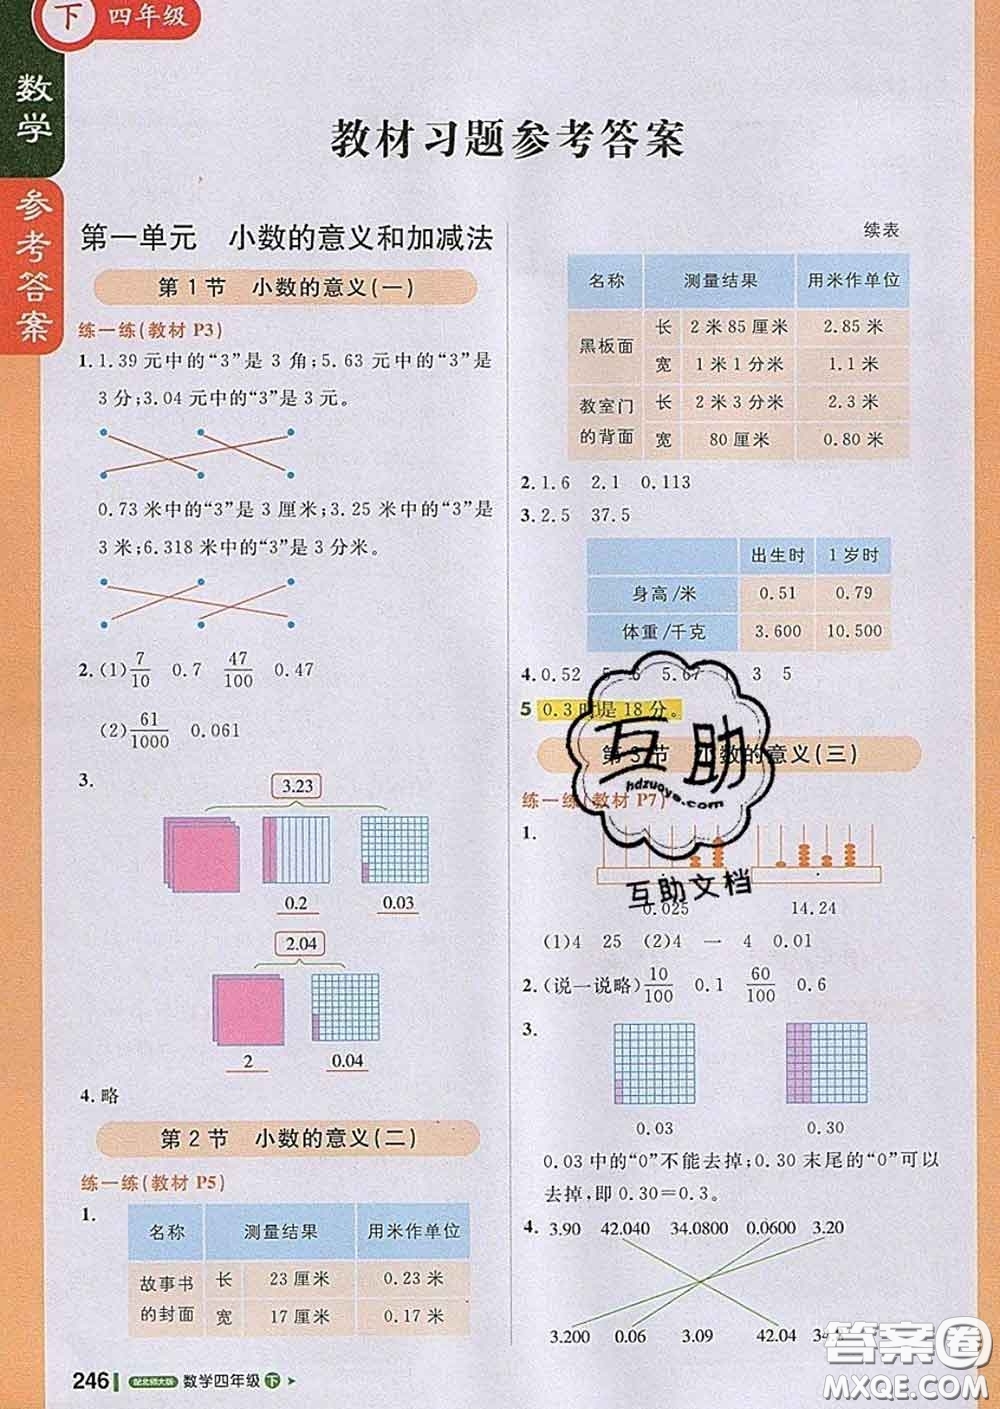 下 四年级
数学
参考答案
教材习题参考答案
第一单元 小数的意义和加减法
第1节 小数的意义(一)
练一练(教材 P3)
1.1.39 元中的“3”是 3 角;5.63 元中的“3”是
3 分;3.04 元中的“3”是 3 元。
0.73 米中的“3”是 3 厘米;3.25 米中的“3”是
3 米;6.318 米中的“3”是 3 分米。
2.(1)7/10 0.7 47/100 0.47
(2)61/1000 0.061
3.
3.23
0.2 0.03
2.04
2 0.04
4.略
第2节 小数的意义(二)
练一练(教材 P5)
1.
名称 测量结果 用米作单位
故事书的封面 长 23 厘米 0.23 米
宽 17 厘米 0.17 米
续表
名称 测量结果 用米作单位
黑板面 长 2 米 85 厘米 2.85 米
宽 1 米 1 分米 1.1 米
教室门的背面 长 2 米 3 分米 2.3 米
宽 80 厘米 0.80 米
2.1.6 2.1 0.113
3.2.5 37.5
出生时 1 岁时
身高/米 0.51 0.79
体重/千克 3.600 10.500
4.0.52 5 6 5.67 1 3 5
5 0.3 时是 18 分。
第3节 小数的意义(三)
练一练(教材 P7)
1.
0.025 14.24
(1)4 25 (2)4 一 4 0.01
2.(说一说略)10/100 0.1 60/100 0.6
3.
0.03 0.30
0.03 中的“0”不能去掉;0.30 末尾的“0”可以
去掉,即 0.30=0.3。
4. 3.90 42.040 34.0800 0.0600 3.20
3.200 0.06 3.09 42.04
246 配北师大版 数学四年级 下
互助
hdzuoye.com
互助文档
答案圈
MXQE.COM